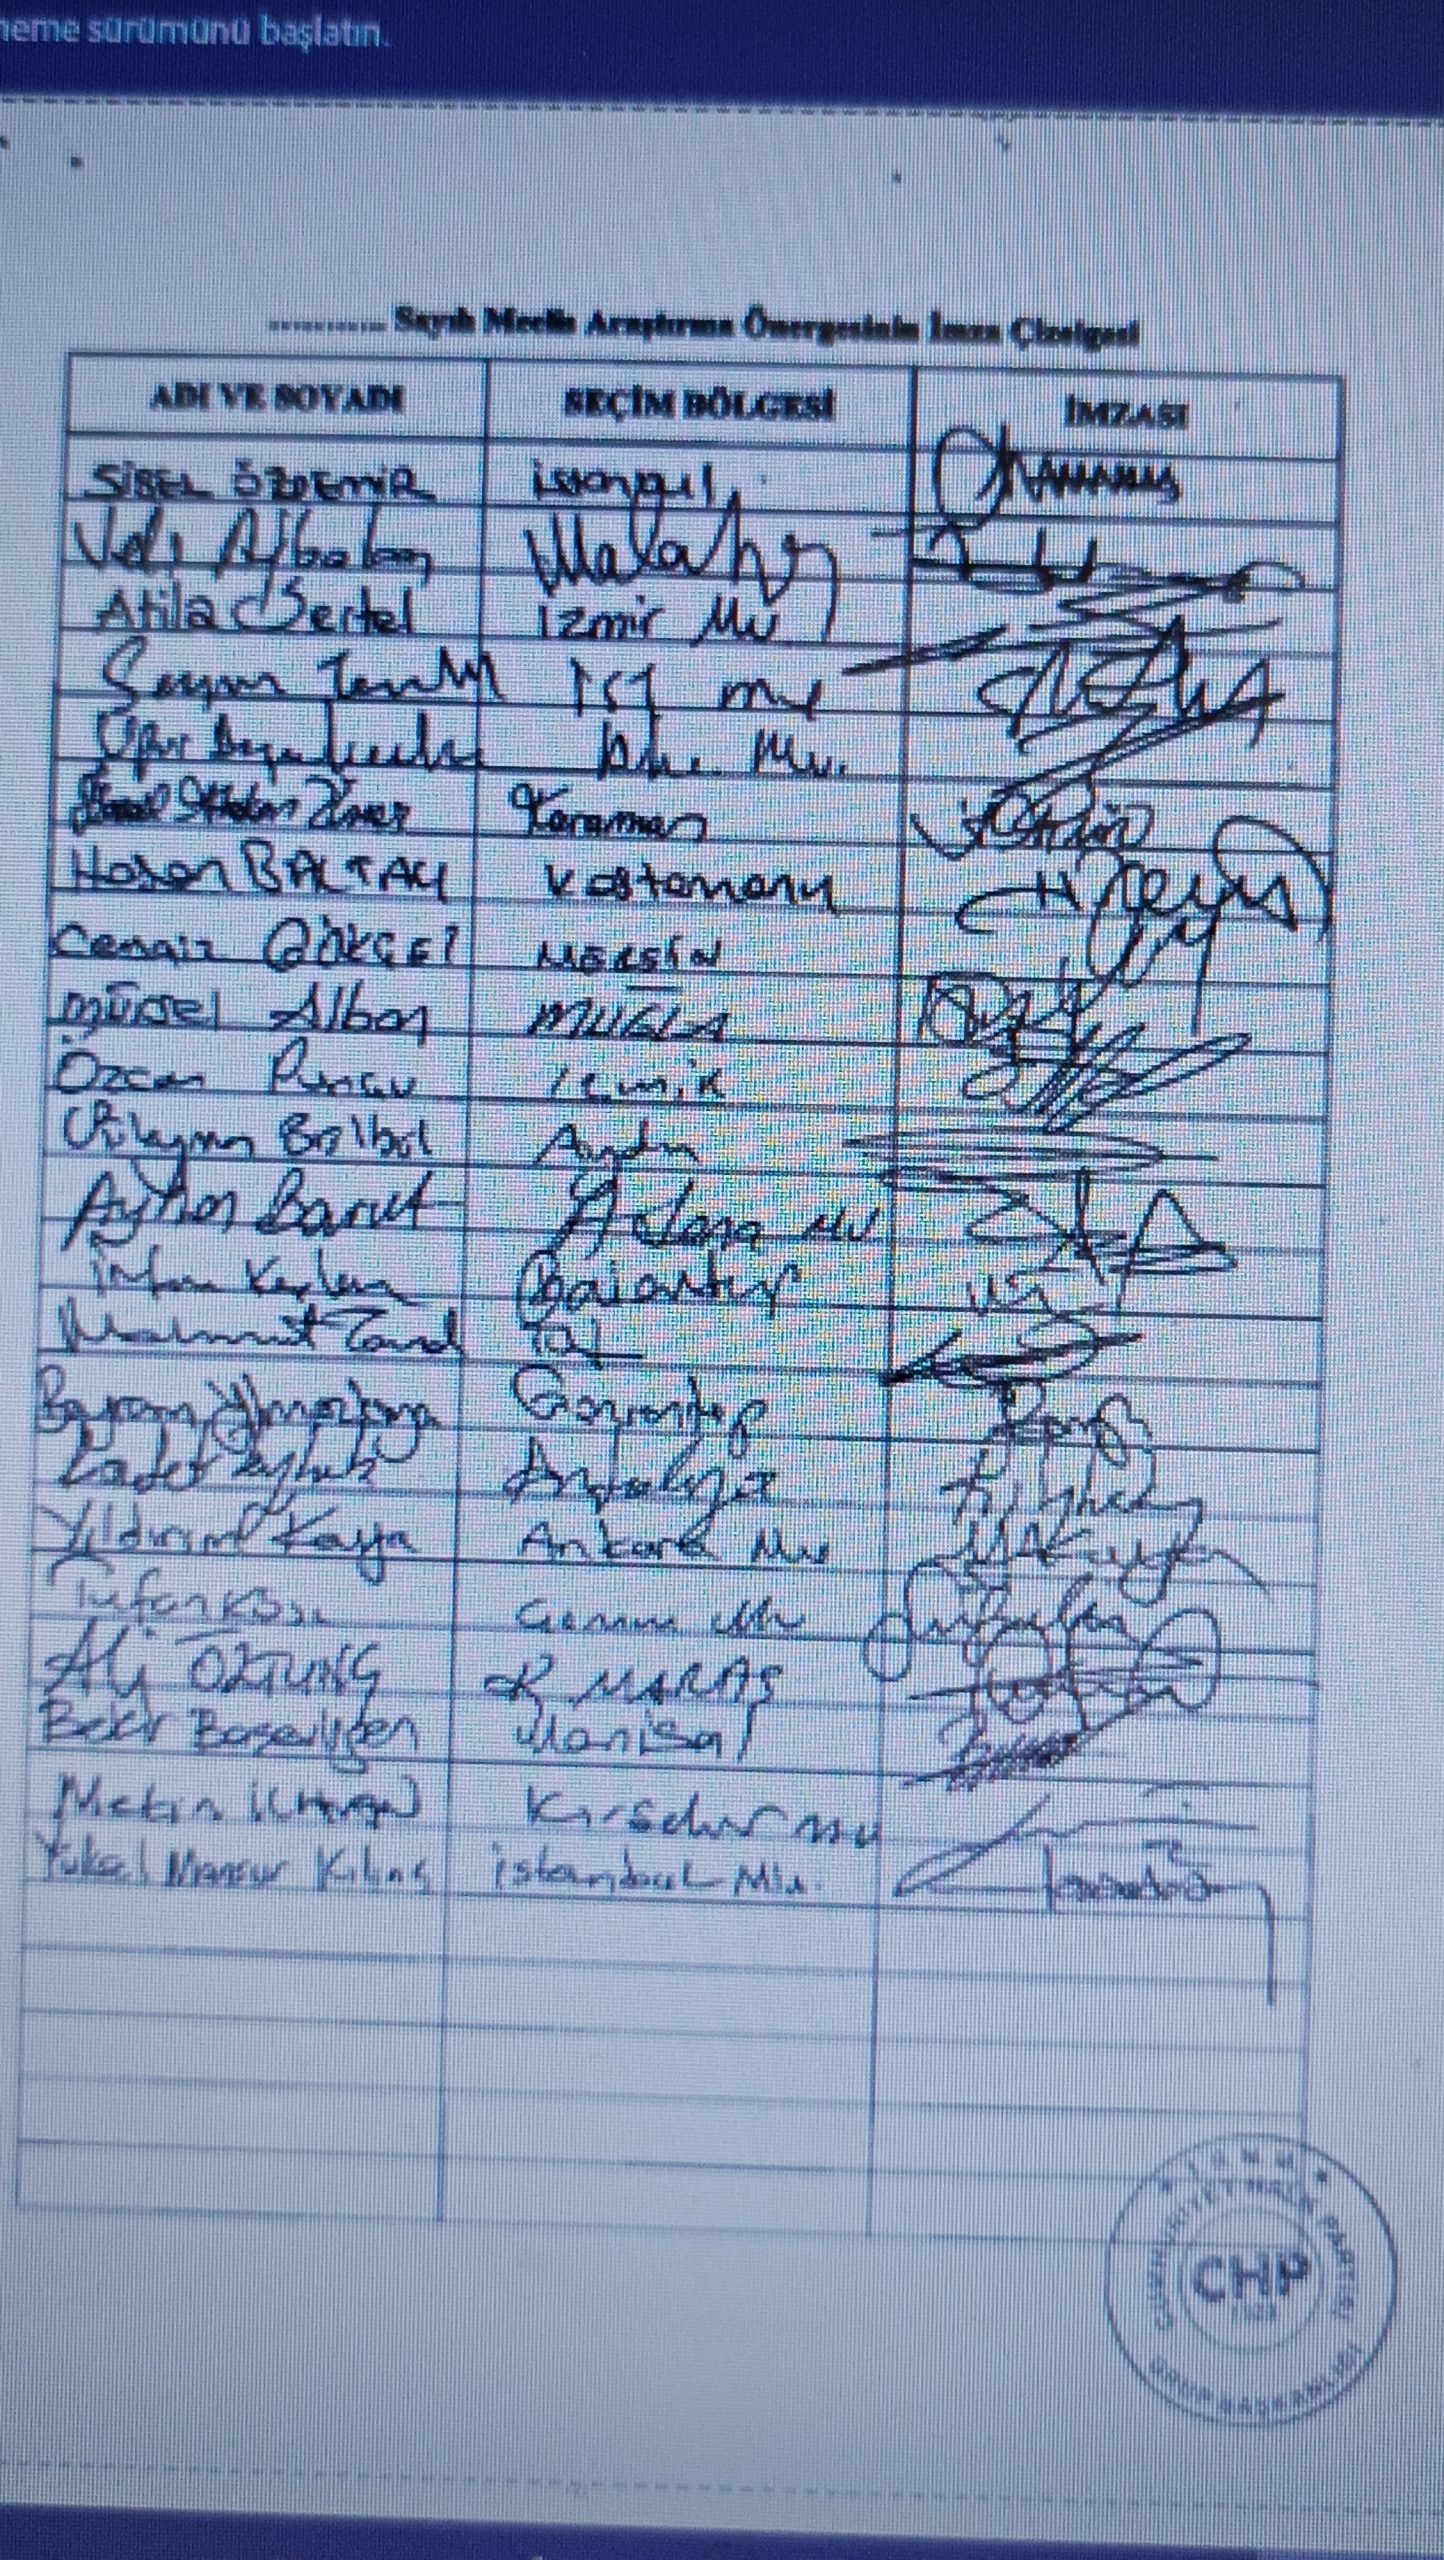 neme sürümünü başlatın.
............ Sayılı Meclis Araştırma Önergesinin İmza Çizelgesi
ADI VE SOYADI SEÇİM BÖLGESİ İMZASI
SİBEL ÖZDEMİR İstanbul
Veli Ağbaba Malatya
Atila Sertel İzmir Mv
İST mv
Mv.
Karaman
Hasan BALTACI Kastamonu
Cengiz GÖKÇEL MERSİN
Mürsel Alban MUĞLA
Özcan Purçu İzmir
Süleyman Bülbül Aydın
Ayhan Barut Adana Mv
İrfan Kaplan Gaziantep
Mahmut Tanal İst
Bayram Yılmazkaya Gaziantep
Antalya
Yıldırım Kaya Ankara Mv
Tufan Köse Çorum Mv
Ali ÖZTUNÇ K MARAŞ
Bekir Başevirgen Manisa
Metin İLHAN Kırşehir mv
Yüksel Mansur Kılınç İstanbul Mv.
CUMHURİYET HALK PARTİSİ
CHP
1923
GRUP BAŞKANLIĞI